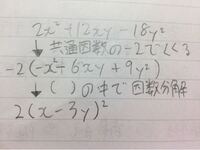 2x²+12xy-18y²
↓共通因数の-2でくくる
-2(-x²+6xy+9y²)
↓( )の中で因数分解
2(x-3y)²